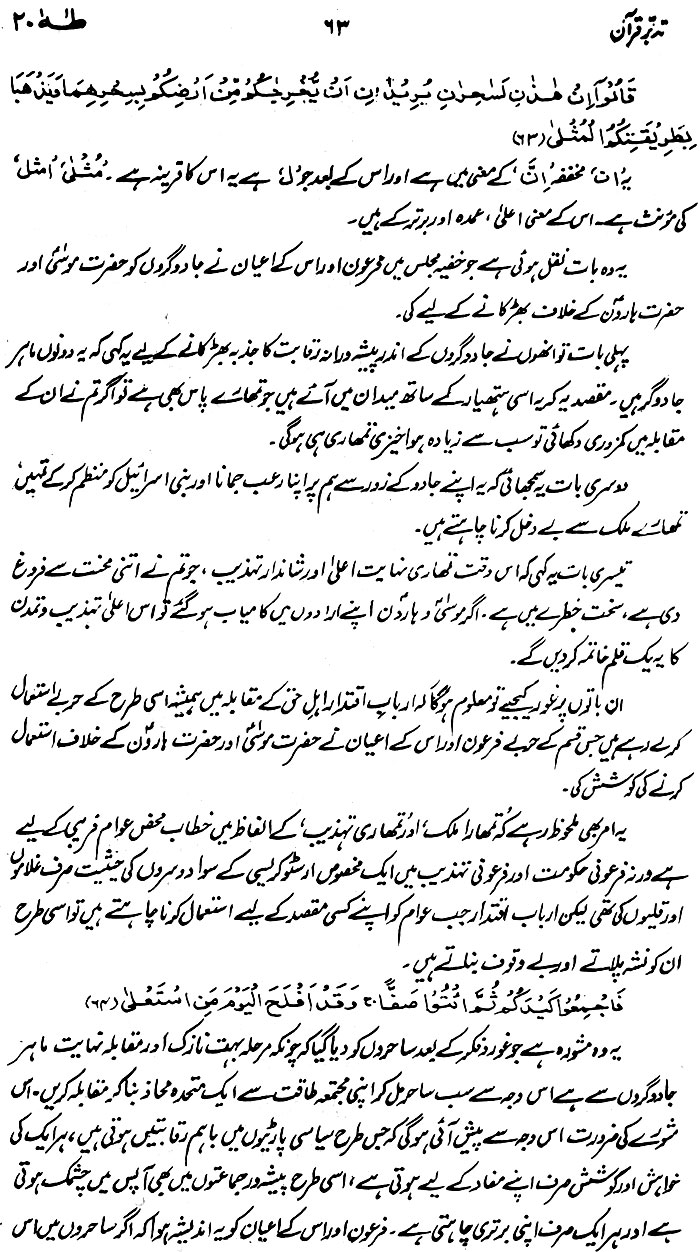 تدبر قرآن ۶۳ طٰهٰ ۲۰
قَالُوْٓا اِنْ هٰذٰنِ لَسٰحِرٰنِ يُرِيْدٰنِ اَنْ يُّخْرِجٰكُمْ مِّنْ اَرْضِكُمْ بِسِحْرِهِمَا وَيَذْهَبَا
بِطَرِيْقَتِكُمُ الْمُثْلٰى (۶۳)
یہ 'اِن' مخففہ 'اِنَّ' کے معنی میں ہے اور اس کے بعد جو 'ل' ہے یہ اس کا قرینہ ہے۔ 'مُثْلٰی' 'اَمثل'
کی مؤنث ہے۔ اس کے معنی اعلیٰ، عمدہ اور برتر کے ہیں۔
یہ وہ بات نقل ہوئی ہے جو خفیہ مجلس میں فرعون اور اس کے اعیان نے جادوگروں کو حضرت موسیٰؑ اور
حضرت ہارونؑ کے خلاف بھڑکانے کے لیے کی۔
پہلی بات تو انھوں نے جادوگروں کے اندر پیشہ ورانہ رقابت کا جذبہ بھڑکانے کے لیے یہ کہی کہ یہ دونوں ماہر
جادوگر ہیں۔ مقصد یہ کہ یہ اسی ہتھیار کے ساتھ میدان میں آئے ہیں جو تمھارے پاس بھی ہے تو اگر تم نے ان کے
مقابلہ میں کمزوری دکھائی تو سب سے زیادہ ہوا خیزی تمھاری ہی ہوگی۔
دوسری بات یہ سجھائی کہ یہ اپنے جادو کے زور سے ہم پر اپنا رعب جمانا اور بنی اسرائیل کو منظم کر کے تمہیں
تمھارے ملک سے بے دخل کرنا چاہتے ہیں۔
تیسری بات یہ کہی کہ اس وقت تمھاری نہایت اعلیٰ اور شاندار تہذیب، جو تم نے اتنی محنت سے فروغ
دی ہے، سخت خطرے میں ہے۔ اگر موسیٰؑ و ہارونؑ اپنے ارادوں میں کامیاب ہو گئے تو اس اعلیٰ تہذیب و تمدن
کا یہ یک قلم خاتمہ کر دیں گے۔
ان باتوں پر غور کیجیے تو معلوم ہوگا کہ اربابِ اقتدار اہلِ حق کے مقابلہ میں ہمیشہ اسی طرح کے حربے استعمال
کرتے رہے ہیں جس قسم کے حربے فرعون اور اس کے اعیان نے حضرت موسیٰؑ اور حضرت ہارونؑ کے خلاف استعمال
کرنے کی کوشش کی۔
یہ امر بھی ملحوظ رہے کہ 'تمھارا ملک' اور 'تمھاری تہذیب' کے الفاظ میں خطاب محض عوام فریبی کے لیے
ہے ورنہ فرعونی حکومت اور فرعونی تہذیب میں ایک مخصوص ارسٹوکریسی کے سوا دوسروں کی حیثیت صرف غلاموں
اور قلیوں کی تھی لیکن ارباب اقتدار جب عوام کو اپنے کسی مقصد کے لیے استعمال کرنا چاہتے ہیں تو اسی طرح
ان کو نشہ پلاتے اور بے وقوف بناتے ہیں۔
فَاَجْمِعُوْا كَيْدَكُمْ ثُمَّ ائْتُوْا صَفًّا ۚ وَقَدْ اَفْلَحَ الْيَوْمَ مَنِ اسْتَعْلٰى (۶۴)
یہ وہ مشورہ ہے جو غور و فکر کے بعد ساحروں کو دیا گیا کہ چونکہ مرحلہ بہت نازک اور مقابلہ نہایت ماہر
جادوگروں سے ہے اس وجہ سے سب ساحر مل کر اپنی مجتمعہ طاقت سے ایک متحدہ محاذ بنا کر مقابلہ کریں۔ اس
مشورے کی ضرورت اس وجہ سے پیش آئی ہوگی کہ جس طرح سیاسی پارٹیوں میں باہم رقابتیں ہوتی ہیں، ہر ایک کی
خواہش اور کوشش صرف اپنے مفاد کے لیے ہوتی ہے، اسی طرح پیشہ ور جماعتوں میں بھی آپس میں چشمک ہوتی
ہے اور ہر ایک صرف اپنی برتری چاہتی ہے۔ فرعون اور اس کے اعیان کو یہ اندیشہ ہوا کہ اگر ساحروں میں اس